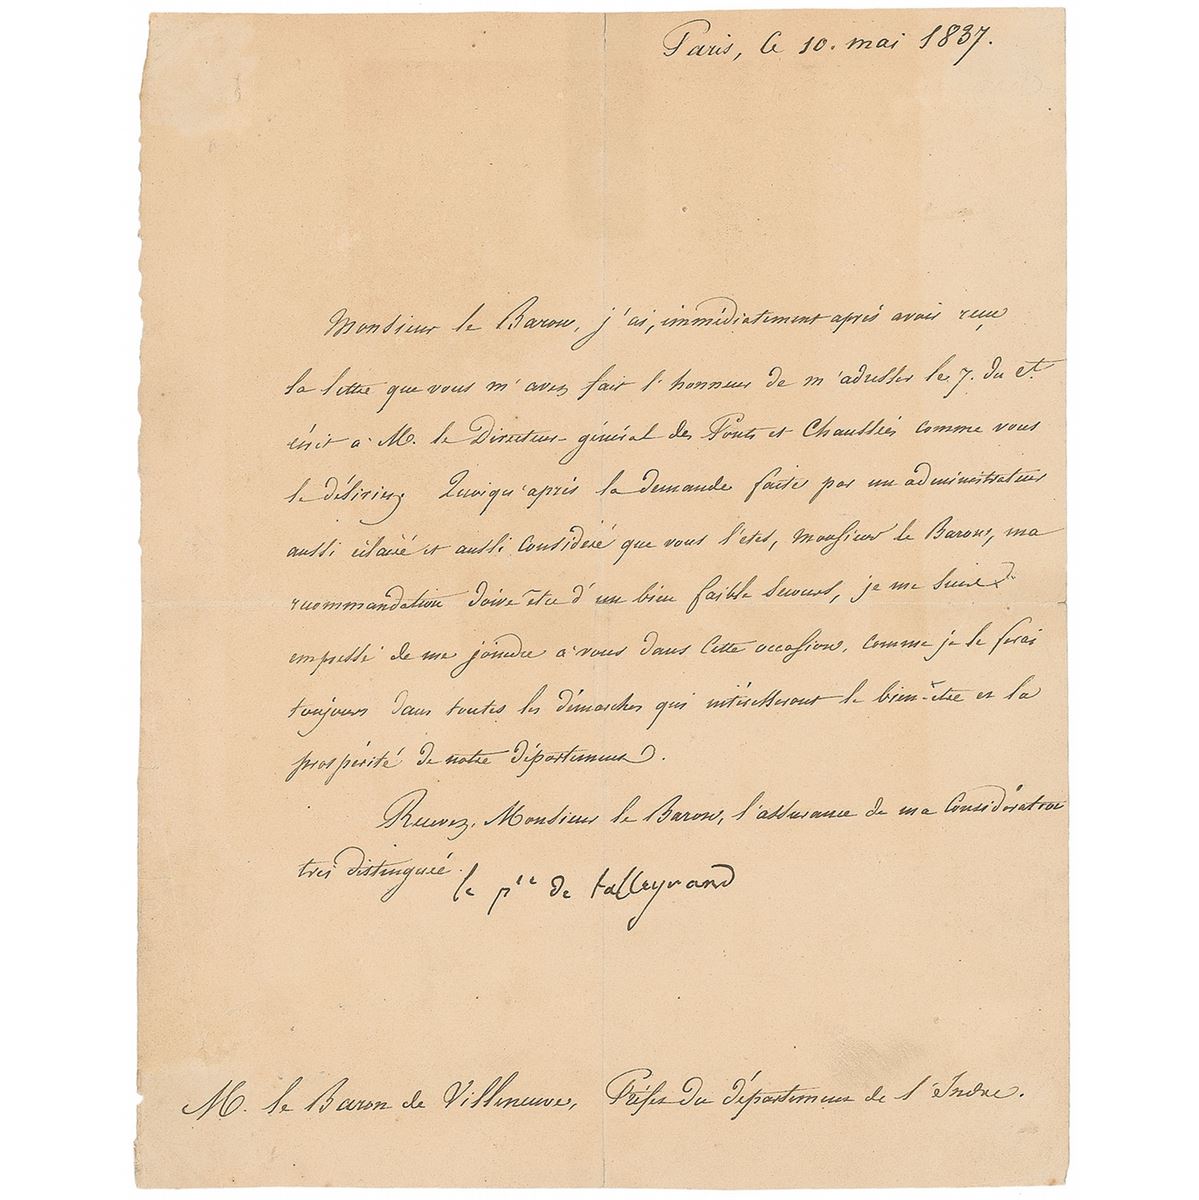 Paris, le 10. mai 1837.
Monsieur le Baron, j'ai, immédiatement après avoir reçu
la lettre que vous m'avez fait l'honneur de m'adresser le 7. du ct.
écrit à M. le Directeur général des Ponts et Chaussées comme vous
le désiriez. Quoiqu'après la demande faite par un administrateur
aussi éclairé et aussi considéré que vous l'etes, Monsieur le Baron, ma
recommandation doive être d'un bien faible secours, je me suis
empressé de me joindre à vous dans cette occasion, comme je le ferai
toujours dans toutes les démarches qui intéresseront le bien-être et la
prospérité de notre département.
Recevez, Monsieur le Baron, l'assurance de ma considération
très distinguée.
le pce de talleyrand
M. le Baron de Villeneuve, Préfet du département de l'Indre.